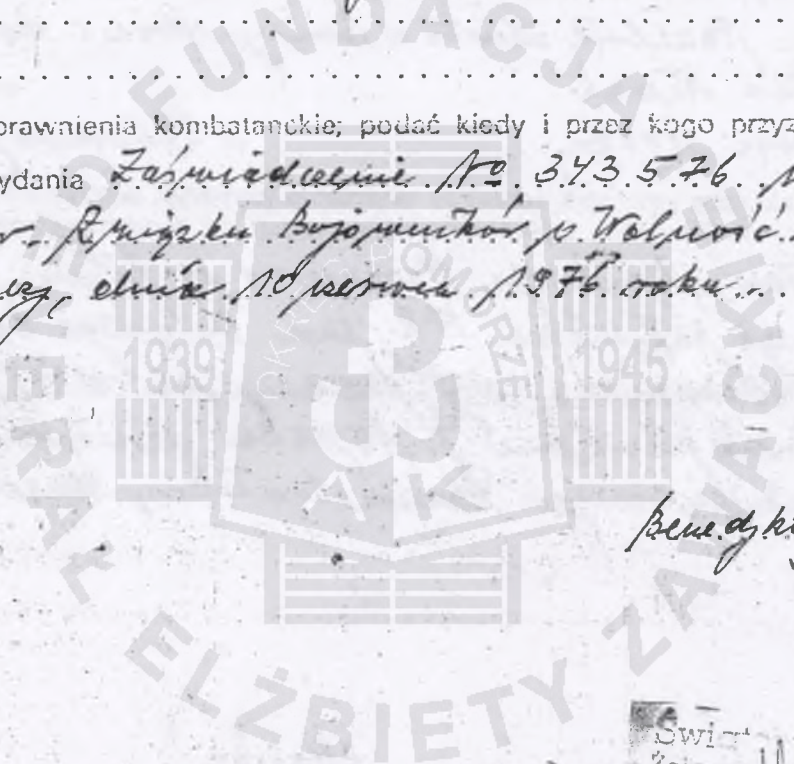 prawnienia kombatanckie; podać kiedy i przez kogo przyz
ydania Zaświadczenie No 343576
Związku Bojowników o Wolność
dnia 10 czerwca 1976 roku
Benedyk
FUNDACJA GENERAŁ ELŻBIETY ZAWACKIEJ
OKRĘG POMORZE
1939 1945
AK